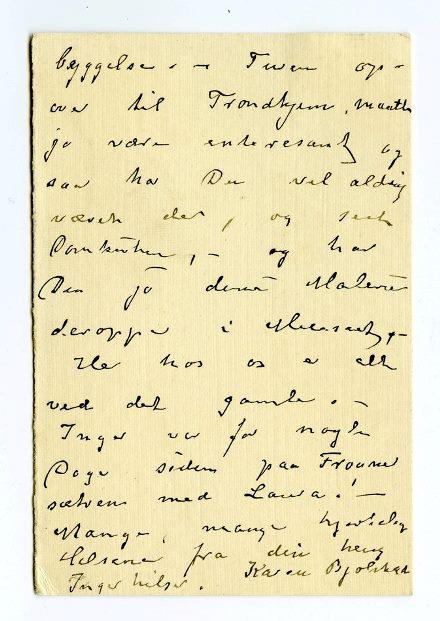 byggelse. — Turen op-
over til Trondhjem, maatte
jo være interesant, og
saa har Du vel aldrig
været der, og sett
Domkirken, — og har
Du jo denne Malerie
deroppe i Museet, —
Her hos os er alt
ved det gamle. —
Inger var for nogle
Dage siden paa Frogner
sæteren med Laura! —
Mange, mange hjertelig
Hilsener fra din heng
Inger hilser. Karen Bjølstad